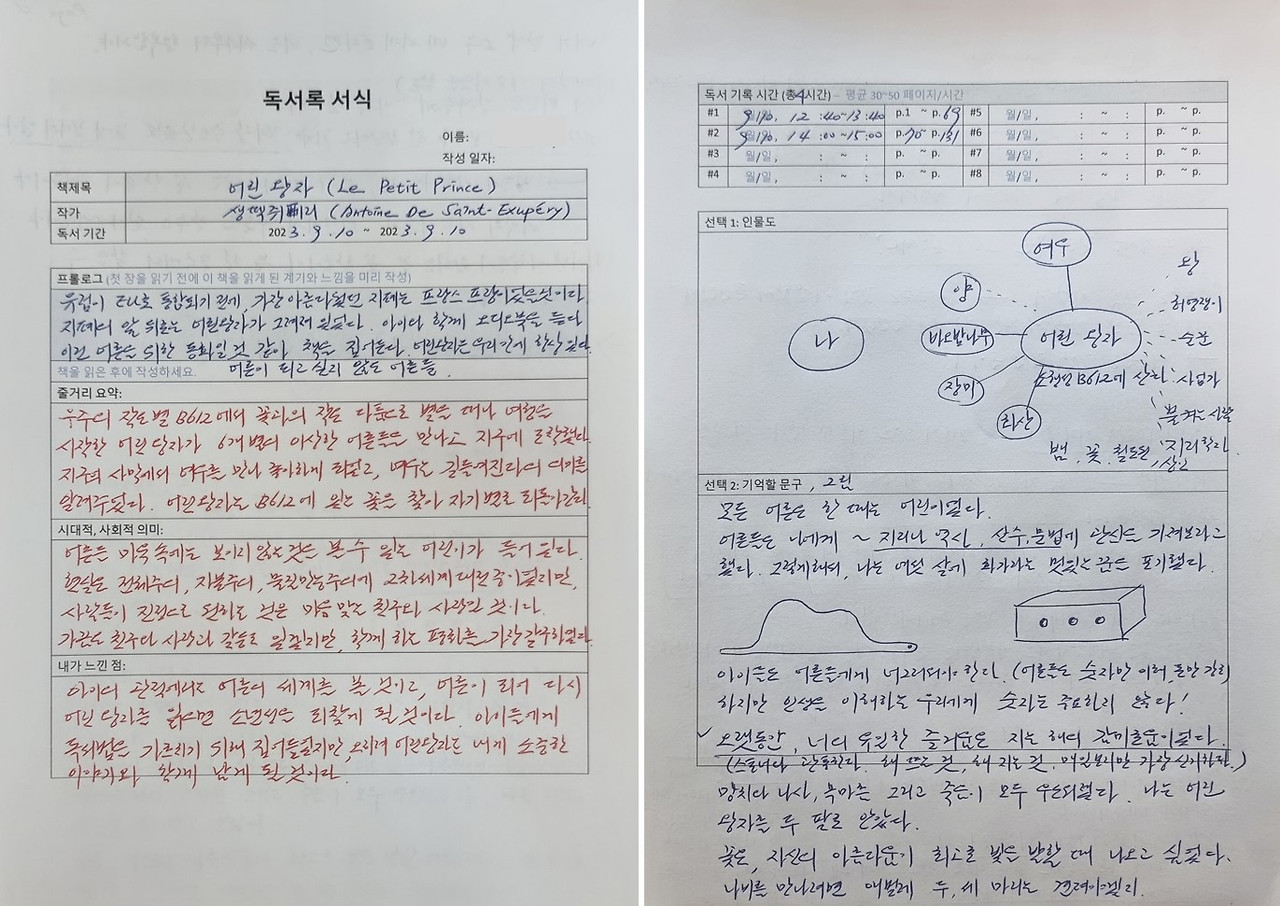 독서록 서식
이름:
작성 일자:
책제목 어린 왕자 (Le Petit Prince)
작가 생떽쥐페리 (Antoine De Saint-Exupéry)
독서 기간 2023. 9. 10 ~ 2023. 9. 10
프롤로그 (첫 장을 읽기 전에 이 책을 읽게 된 계기와 느낌을 미리 작성)
유럽이 EU로 통합되기 전에, 가장 아름다웠던 지폐는 프랑스 프랑이었을 것이다.
지폐의 앞 뒤로는 어린왕자가 그려져 있었다. 아이와 함께 오디오북을 듣다
이건 어른을 위한 동화일 것 같아 책을 집어든다. 어린왕자는 우리 안에 항상 있다.
책을 읽은 후에 작성하세요. 어른이 되고 싶지 않은 어른들.
줄거리 요약:
우주의 작은 별 B612에서 꽃과의 작은 다툼으로 별을 떠나 여행을
시작한 어린 왕자가 6개 별의 이상한 어른들을 만나고 지구에 도착했다.
지구의 사막에서 여우를 만나 좋아하게 되었고, 여우는 길들여진다의 의미를
알려주었다. 어린왕자는 B612에 있는 꽃을 찾아 자기 별로 되돌아간다.
시대적, 사회적 의미:
어른들 마음 속에는 보이지 않는 것을 볼 수 있는 어린이가 들어 있다.
현실은 전체주의, 자본주의, 물질만능주의에 2차 세계대전 중이었지만,
사람들이 진정으로 원하는 것은 마음 맞는 친구와 사랑인 것이다.
가끔은 친구와 사랑과 갈등도 있겠지만, 함께 하는 평화를 가장 갈구하였다.
내가 느낀 점:
아이의 관점에서는 어른의 세계를 본 것이고, 어른이 되어 다시
어린 왕자를 읽으면 소년성을 되찾게 될 것이다. 아이들에게
독서법을 가르치기 위해 집어들었지만, 오히려 어린왕자는 내게 소중한
이야기와 함께 남게 될 것이다.
독서 기록 시간 (총4시간) – 평균 30~50 페이지/시간
#1 9월/10일, 12:40~13:40 p.1 ~ p.69 #5 월/일, : ~ : p. ~ p.
#2 9월/10일, 14:00~15:00 p.70 ~ p.131 #6 월/일, : ~ : p. ~ p.
#3 월/일, : ~ : p. ~ p. #7 월/일, : ~ : p. ~ p.
#4 월/일, : ~ : p. ~ p. #8 월/일, : ~ : p. ~ p.
선택 1: 인물도
여우
왕
양
허영쟁이
나
바오밥나무
어린 왕자
술꾼
장미
소행성 B612에 산다.
사업가
화산
불 켜는 사람
지리학자
뱀, 꽃, 철도원, 상인
선택 2: 기억할 문구, 그림
모든 어른은 한 때는 어린이였다.
어른들은 나에게 ~ 지리나 역사, 산수, 문법에 관심을 가져보라고
했다. 그렇게 해서, 나는 여섯 살에 화가라는 멋있는 꿈을 포기했다.
아이들은 어른들에게 너그러워야 한다. (어른들은 숫자만 이해, 돈만 강조)
하지만 인생을 이해하는 우리에게 숫자는 중요하지 않다!
✓ 오랫동안, 너의 유일한 즐거움은 지는 해의 감미로움이었다.
(스토너와 관통한다. 해 뜨는 것, 해 지는 것, 매일 보지만 가장 신기하다.)
망치와 나사, 목마름 그리고 죽음이 모두 우스워졌다. 나는 어린
왕자를 두 팔로 안았다.
꽃은, 자신의 아름다움이 최고로 빛을 발할 때 나오고 싶었다.
나비를 만나려면 애벌레 두, 세 마리는 견뎌야겠지.